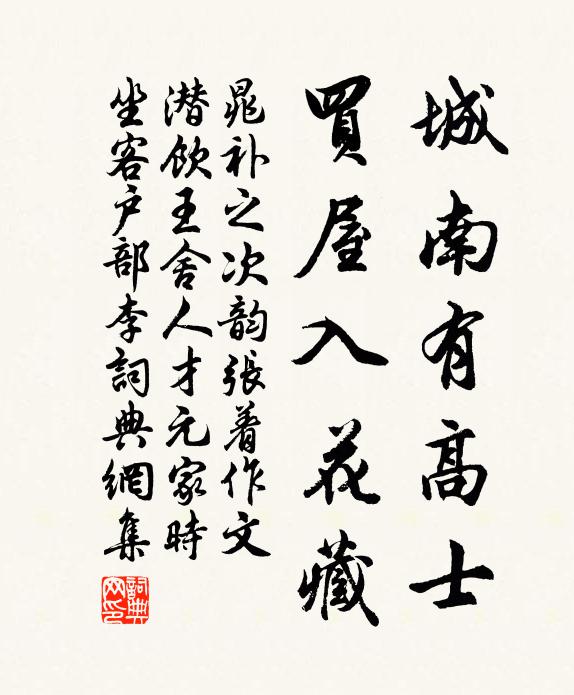 城南有高士
買屋入花藏
晁补之次韵張着作文
潜飲王舍人才元家時
坐客户部李詞典網集
詞典网印